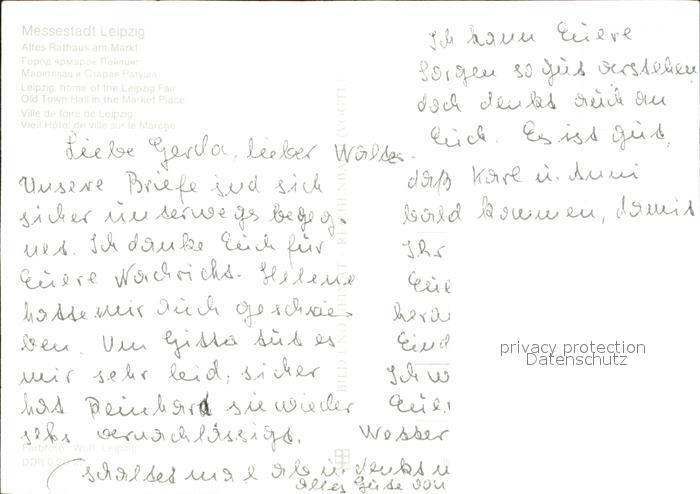 Messestadt Leipzig
Altes Rathaus am Markt
Город ярмарок Лейпциг
Маркетплац и Старая Ратуша
Leipzig, home of the Leipzig Fair
Old Town Hall in the Market Place
Ville de foire de Leipzig
Vieil Hôtel de ville sur le Marché
Liebe Gerda, lieber Walter.
Unsere Briefe sind sich
sicher unserwegs begeg-
net. Ich danke Euch für
Euere Nachricht. Helene
hatte mir auch geschrie-
ben. Um Gitta tut es
mir sehr leid, sicher
hat Reinhard sie wieder
sehr vernachlässigt.
Ich kann Euere
Sorgen so gut verstehen
doch denkt auch an
Euch. Es ist gut,
daß Karl u. Anni
bald kommen, damit
Ihr
Eue
hera
Eind
Ich w
Euer
Wetter
schaltet mal ab u. denkt
alles Gute von
BILD UND HEIMAT REICHENBACH (VOGTL)
Farbfoto: Wolf, Leipzig
DDR 0,20
privacy protection
Datenschutz